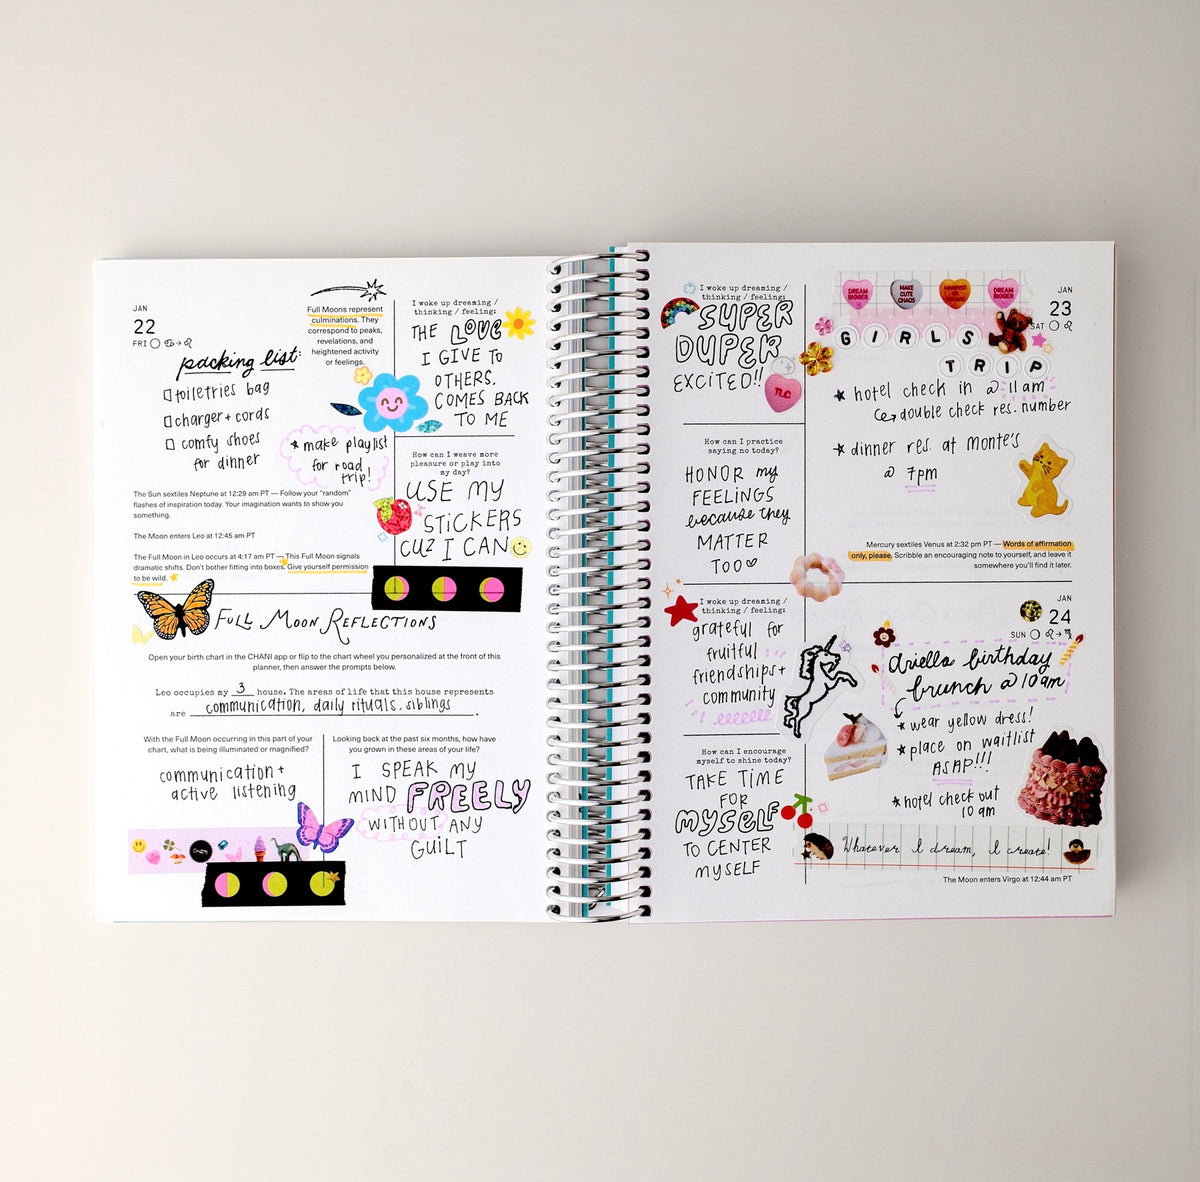 JAN
22
FRI
Full Moons represent
culminations. They
correspond to peaks,
revelations, and
heightened activity
or feelings.
packing list:
toiletries bag
charger + cords
comfy shoes
for dinner
* make playlist
for road
trip!
The Sun sextiles Neptune at 12:29 am PT — Follow your "random"
flashes of inspiration today. Your imagination wants to show you
something.
The Moon enters Leo at 12:45 am PT
The Full Moon in Leo occurs at 4:17 am PT — This Full Moon signals
dramatic shifts. Don't bother fitting into boxes. Give yourself permission
to be wild.
I woke up dreaming /
thinking / feeling:
THE LOVE
I GIVE TO
OTHERS.
COMES BACK
TO ME
How can I weave more
pleasure or play into
my day?
USE MY
STICKERS
CUZ I CAN
FULL MOON REFLECTIONS
Open your birth chart in the CHANI app or flip to the chart wheel you personalized at the front of this
planner, then answer the prompts below.
Leo occupies my 3 house. The areas of life that this house represents
are communication, daily rituals, siblings.
With the Full Moon occurring in this part of your
chart, what is being illuminated or magnified?
communication +
active listening
Looking back at the past six months, how have
you grown in these areas of your life?
I SPEAK MY
MIND FREELY
WITHOUT ANY
GUILT
I woke up dreaming /
thinking / feeling:
SUPER
DUPER
EXCITED!!
nc
How can I practice
saying no today?
HONOR my
FEELINGS
because they
MATTER
TOO
DREAM BIGGER
MAKE CUTE CHAOS
DREAM BIGGER
JAN
23
SAT
GIRLS
TRIP
* hotel check in @ 11am
double check res. number
* dinner res. at Monte's
@ 7pm
Mercury sextiles Venus at 2:32 pm PT — Words of affirmation
only, please. Scribble an encouraging note to yourself, and leave it
somewhere you'll find it later.
I woke up dreaming /
thinking / feeling:
grateful for
fruitful
friendships +
community
How can I encourage
myself to shine today?
TAKE TIME
FOR
MYSELF
TO CENTER
MYSELF
JAN
24
SUN
Ariella birthday
brunch @ 10am
* wear yellow dress!
* place on waitlist
ASAP!!!
* hotel check out
10 am
Whatever I dream, I create!
The Moon enters Virgo at 12:44 am PT